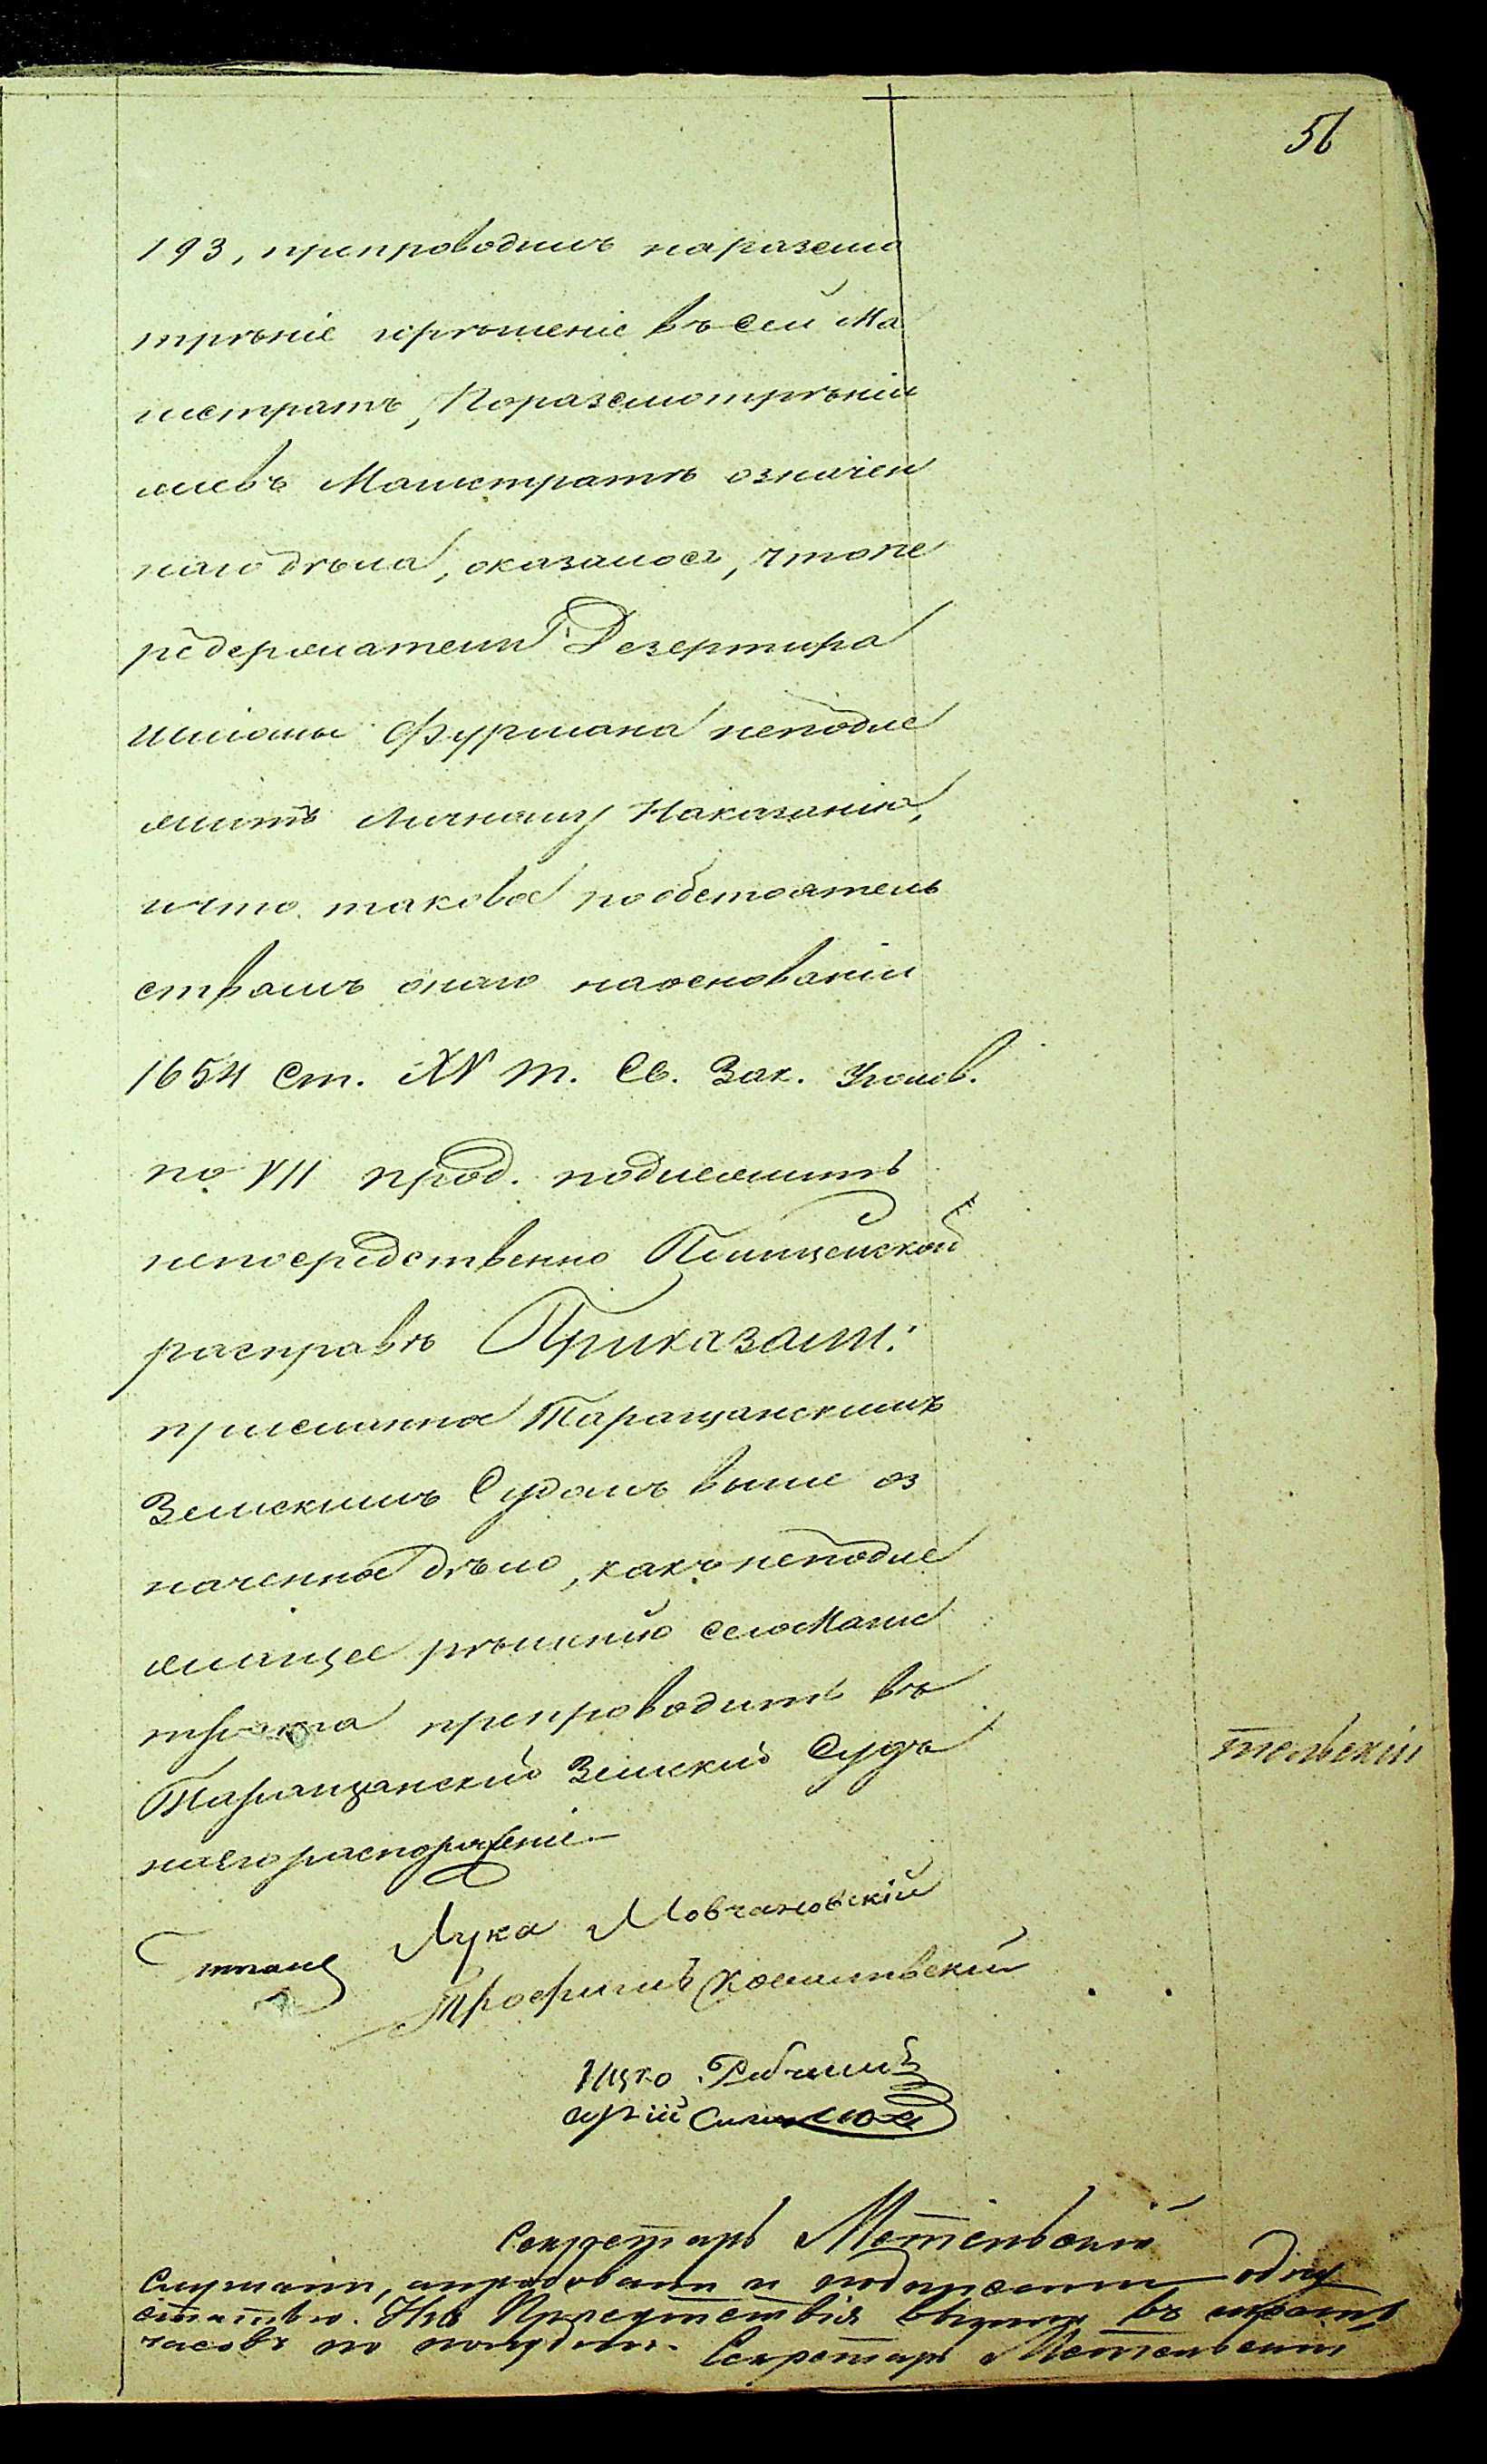 56
193, препроводилъ наразсмо
трѣніе ирѣшеніе въсей Ма
гистратъ, Поразсмотрѣніи
жевъ Магистратѣ означен
наго дѣла, оказалось, чтопе
редержатели Дезертира
Шліомы Фурмана неподле
житъ личному Наказанію,
ичто таковое пообстоятель
ствамъ онаго наоснованіи
1654 Ст. XV т. Св. Зак. Уголов.
по VII прод. подлежитъ
непосредственно Полицейской
расправѣ Приказали:
присланное Таращанскимъ
Земскимъ Судомъ выше оз
наченное дѣло, какъ неподле
жащее рѣшенію сегоМагис
трата препроводить въ
Таращанскій Земскій Судъ
наегораспоряженіе
тельскій
Лука Мовчановскій
Трофимъ
Ицко
Секретарь Метельскій
Слушали, и подписали одну
статью. Изъ Присутствія вышли въ
часовъ по полудни. Секретарь Метельскій